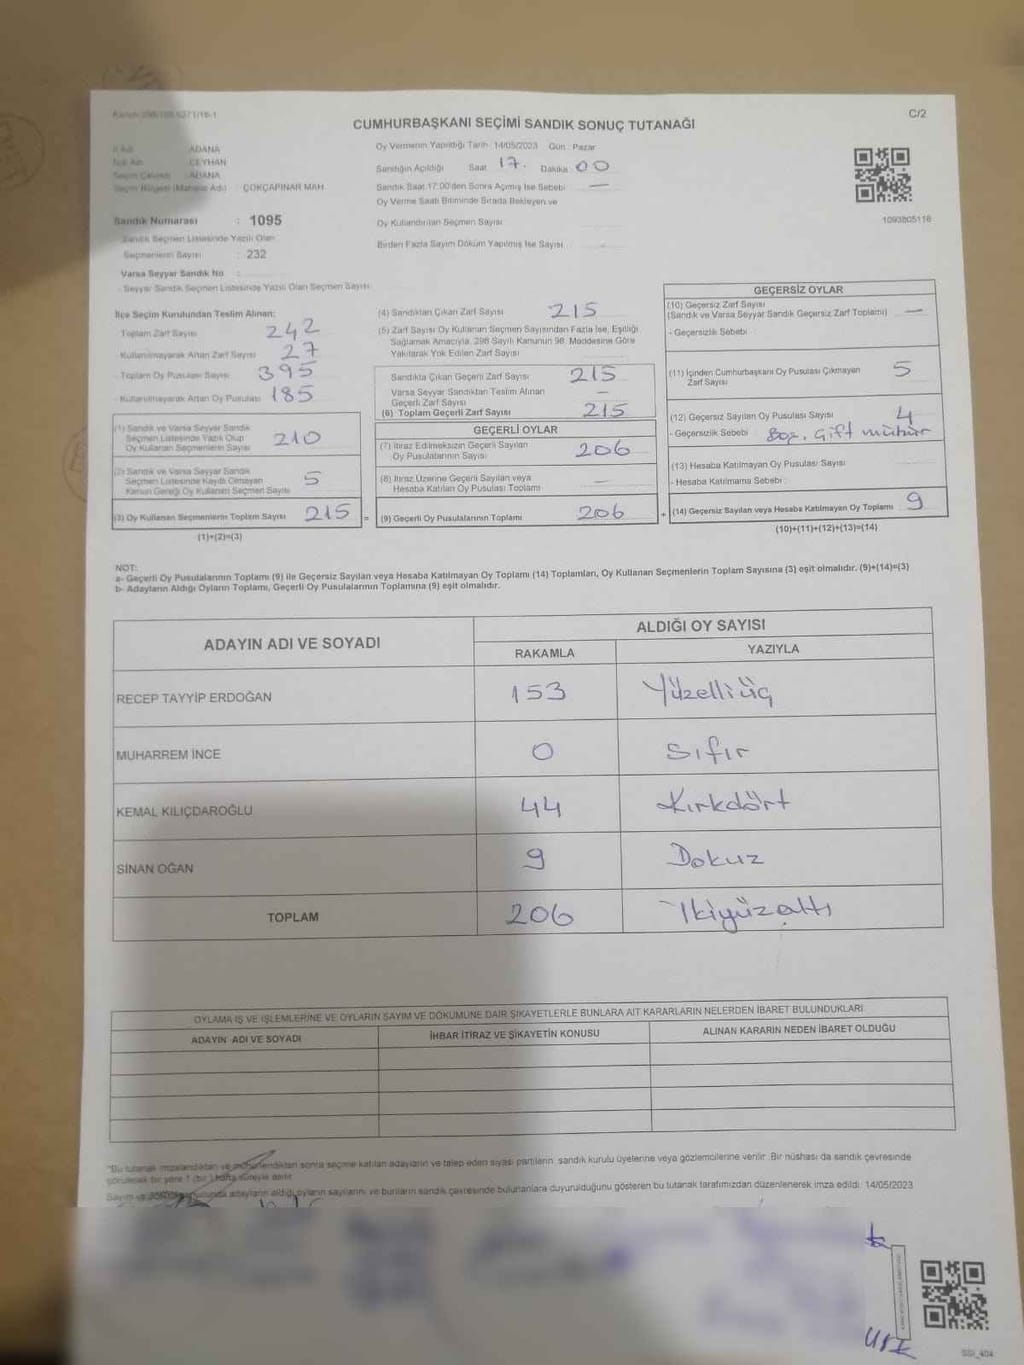 C/2
CUMHURBAŞKANI SEÇİMİ SANDIK SONUÇ TUTANAĞI
İl Adı : ADANA
İlçe Adı : CEYHAN
Seçim Çevresi : ADANA
Seçim Bölgesi (Mahalle Adı) : ÇOKÇAPINAR MAH.
Sandık Numarası : 1095
Sandık Seçmen Listesinde Yazılı Olan
Seçmenlerin Sayısı : 232
Varsa Seyyar Sandık No :
- Seyyar Sandık Seçmen Listesinde Yazılı Olan Seçmen Sayısı:
Oy Vermenin Yapıldığı Tarih : 14/05/2023 Gün : Pazar
Sandığın Açıldığı Saat 17. Dakika 00
Sandık Saat 17:00'den Sonra Açılmış İse Sebebi : —
Oy Verme Saati Bitiminde Sırada Bekleyen ve
Oy Kullandırılan Seçmen Sayısı
Birden Fazla Sayım Döküm Yapılmış İse Sayısı
1093805116
İlçe Seçim Kurulundan Teslim Alınan:
Toplam Zarf Sayısı 242
- Kullanılmayarak Artan Zarf Sayısı 27
- Toplam Oy Pusulası Sayısı 395
- Kullanılmayarak Artan Oy Pusulası 185
(1) Sandık ve Varsa Seyyar Sandık
Seçmen Listesinde Yazılı Olup
Oy Kullanan Seçmenlerin Sayısı 210
(2) Sandık ve Varsa Seyyar Sandık
Seçmen Listesinde Kayıtlı Olmayan
Kanun Gereği Oy Kullanan Seçmen Sayısı 5
(3) Oy Kullanan Seçmenlerin Toplam Sayısı 215 =
(1)+(2)=(3)
(4) Sandıktan Çıkan Zarf Sayısı 215
(5) Zarf Sayısı Oy Kullanan Seçmen Sayısından Fazla İse, Eşitliği
Sağlamak Amacıyla, 298 Sayılı Kanunun 98. Maddesine Göre
Yakılarak Yok Edilen Zarf Sayısı
Sandıkta Çıkan Geçerli Zarf Sayısı 215
Varsa Seyyar Sandıktan Teslim Alınan
Geçerli Zarf Sayısı —
(6) Toplam Geçerli Zarf Sayısı 215
GEÇERLİ OYLAR
(7) İtiraz Edilmeksizin Geçerli Sayılan
Oy Pusulalarının Sayısı 206
(8) İtiraz Üzerine Geçerli Sayılan veya
Hesaba Katılan Oy Pusulası Toplamı —
(9) Geçerli Oy Pusulalarının Toplamı 206 +
GEÇERSİZ OYLAR
(10) Geçersiz Zarf Sayısı
(Sandık ve Varsa Seyyar Sandık Geçersiz Zarf Toplamı) —
- Geçersizlik Sebebi :
(11) İçinden Cumhurbaşkanı Oy Pusulası Çıkmayan
Zarf Sayısı 5
(12) Geçersiz Sayılan Oy Pusulası Sayısı 4
- Geçersizlik Sebebi : Boş, Çift mühür
(13) Hesaba Katılmayan Oy Pusulası Sayısı
- Hesaba Katılmama Sebebi :
(14) Geçersiz Sayılan veya Hesaba Katılmayan Oy Toplamı 9
(10)+(11)+(12)+(13)=(14)
NOT:
a- Geçerli Oy Pusulalarının Toplamı (9) ile Geçersiz Sayılan veya Hesaba Katılmayan Oy Toplamı (14) Toplamları, Oy Kullanan Seçmenlerin Toplam Sayısına (3) eşit olmalıdır. (9)+(14)=(3)
b- Adayların Aldığı Oyların Toplamı, Geçerli Oy Pusulalarının Toplamına (9) eşit olmalıdır.
ADAYIN ADI VE SOYADI
ALDIĞI OY SAYISI
RAKAMLA YAZIYLA
RECEP TAYYİP ERDOĞAN 153 Yüzelliüç
MUHARREM İNCE 0 Sıfır
KEMAL KILIÇDAROĞLU 44 Kırkdört
SİNAN OĞAN 9 Dokuz
TOPLAM 206 İkiyüzaltı
OYLAMA İŞ VE İŞLEMLERİNE VE OYLARIN SAYIM VE DÖKÜMÜNE DAİR ŞİKAYETLERLE BUNLARA AİT KARARLARIN NELERDEN İBARET BULUNDUKLARI
ADAYIN ADI VE SOYADI İHBAR İTİRAZ VE ŞİKAYETİN KONUSU ALINAN KARARIN NEDEN İBARET OLDUĞU
"Bu tutanak imzalandıktan ve mühürlendikten sonra seçime katılan adayların ve talep eden siyasi partilerin sandık kurulu üyelerine veya gözlemcilerine verilir. Bir nüshası da sandık çevresinde
görülecek bir yere 1 (bir) hafta süreyle asılır.
adayların aldığı oyların sayılarını ve bunların sandık çevresinde bulunanlara duyurulduğunu gösteren bu tutanak tarafımızdan düzenlenerek imza edildi. 14/05/2023